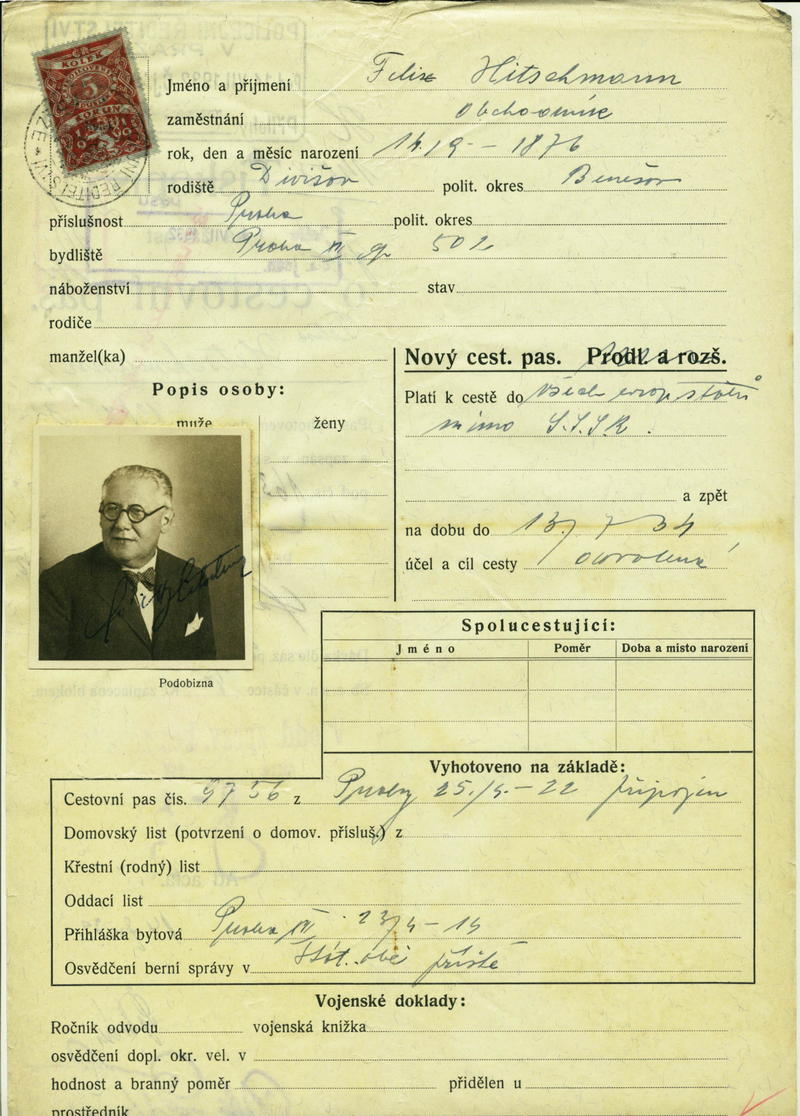 KOLEK
5
KORUN
Jméno a příjmení Felix Hitschmann
zaměstnání Obchodník
rok, den a měsíc narození 14. 9 – 1876
rodiště Divišov polit. okres Benešov
příslušnost Praha polit. okres
bydliště Praha IV 502
náboženství stav
rodiče
manžel(ka)
Nový cest. pas. Prodl. a rozš.
Popis osoby:
Platí k cestě do všech evrop států
mimo S.S.S.R.
muže ženy
a zpět
na dobu do 13/7 34
účel a cíl cesty dovolená
Spolucestující:
Jméno Poměr Doba a místo narození
Podobizna
Vyhotoveno na základě:
Cestovní pas čís. 9756 z Prahy 25./4.–22 připojen
Domovský list (potvrzení o domov. přísluš.) z
Křestní (rodný) list
Oddací list
Přihláška bytová Praha IV
Osvědčení berní správy v příště
Vojenské doklady:
Ročník odvodu vojenská knížka
osvědčení dopl. okr. vel. v
hodnost a branný poměr přidělen u
prostředník